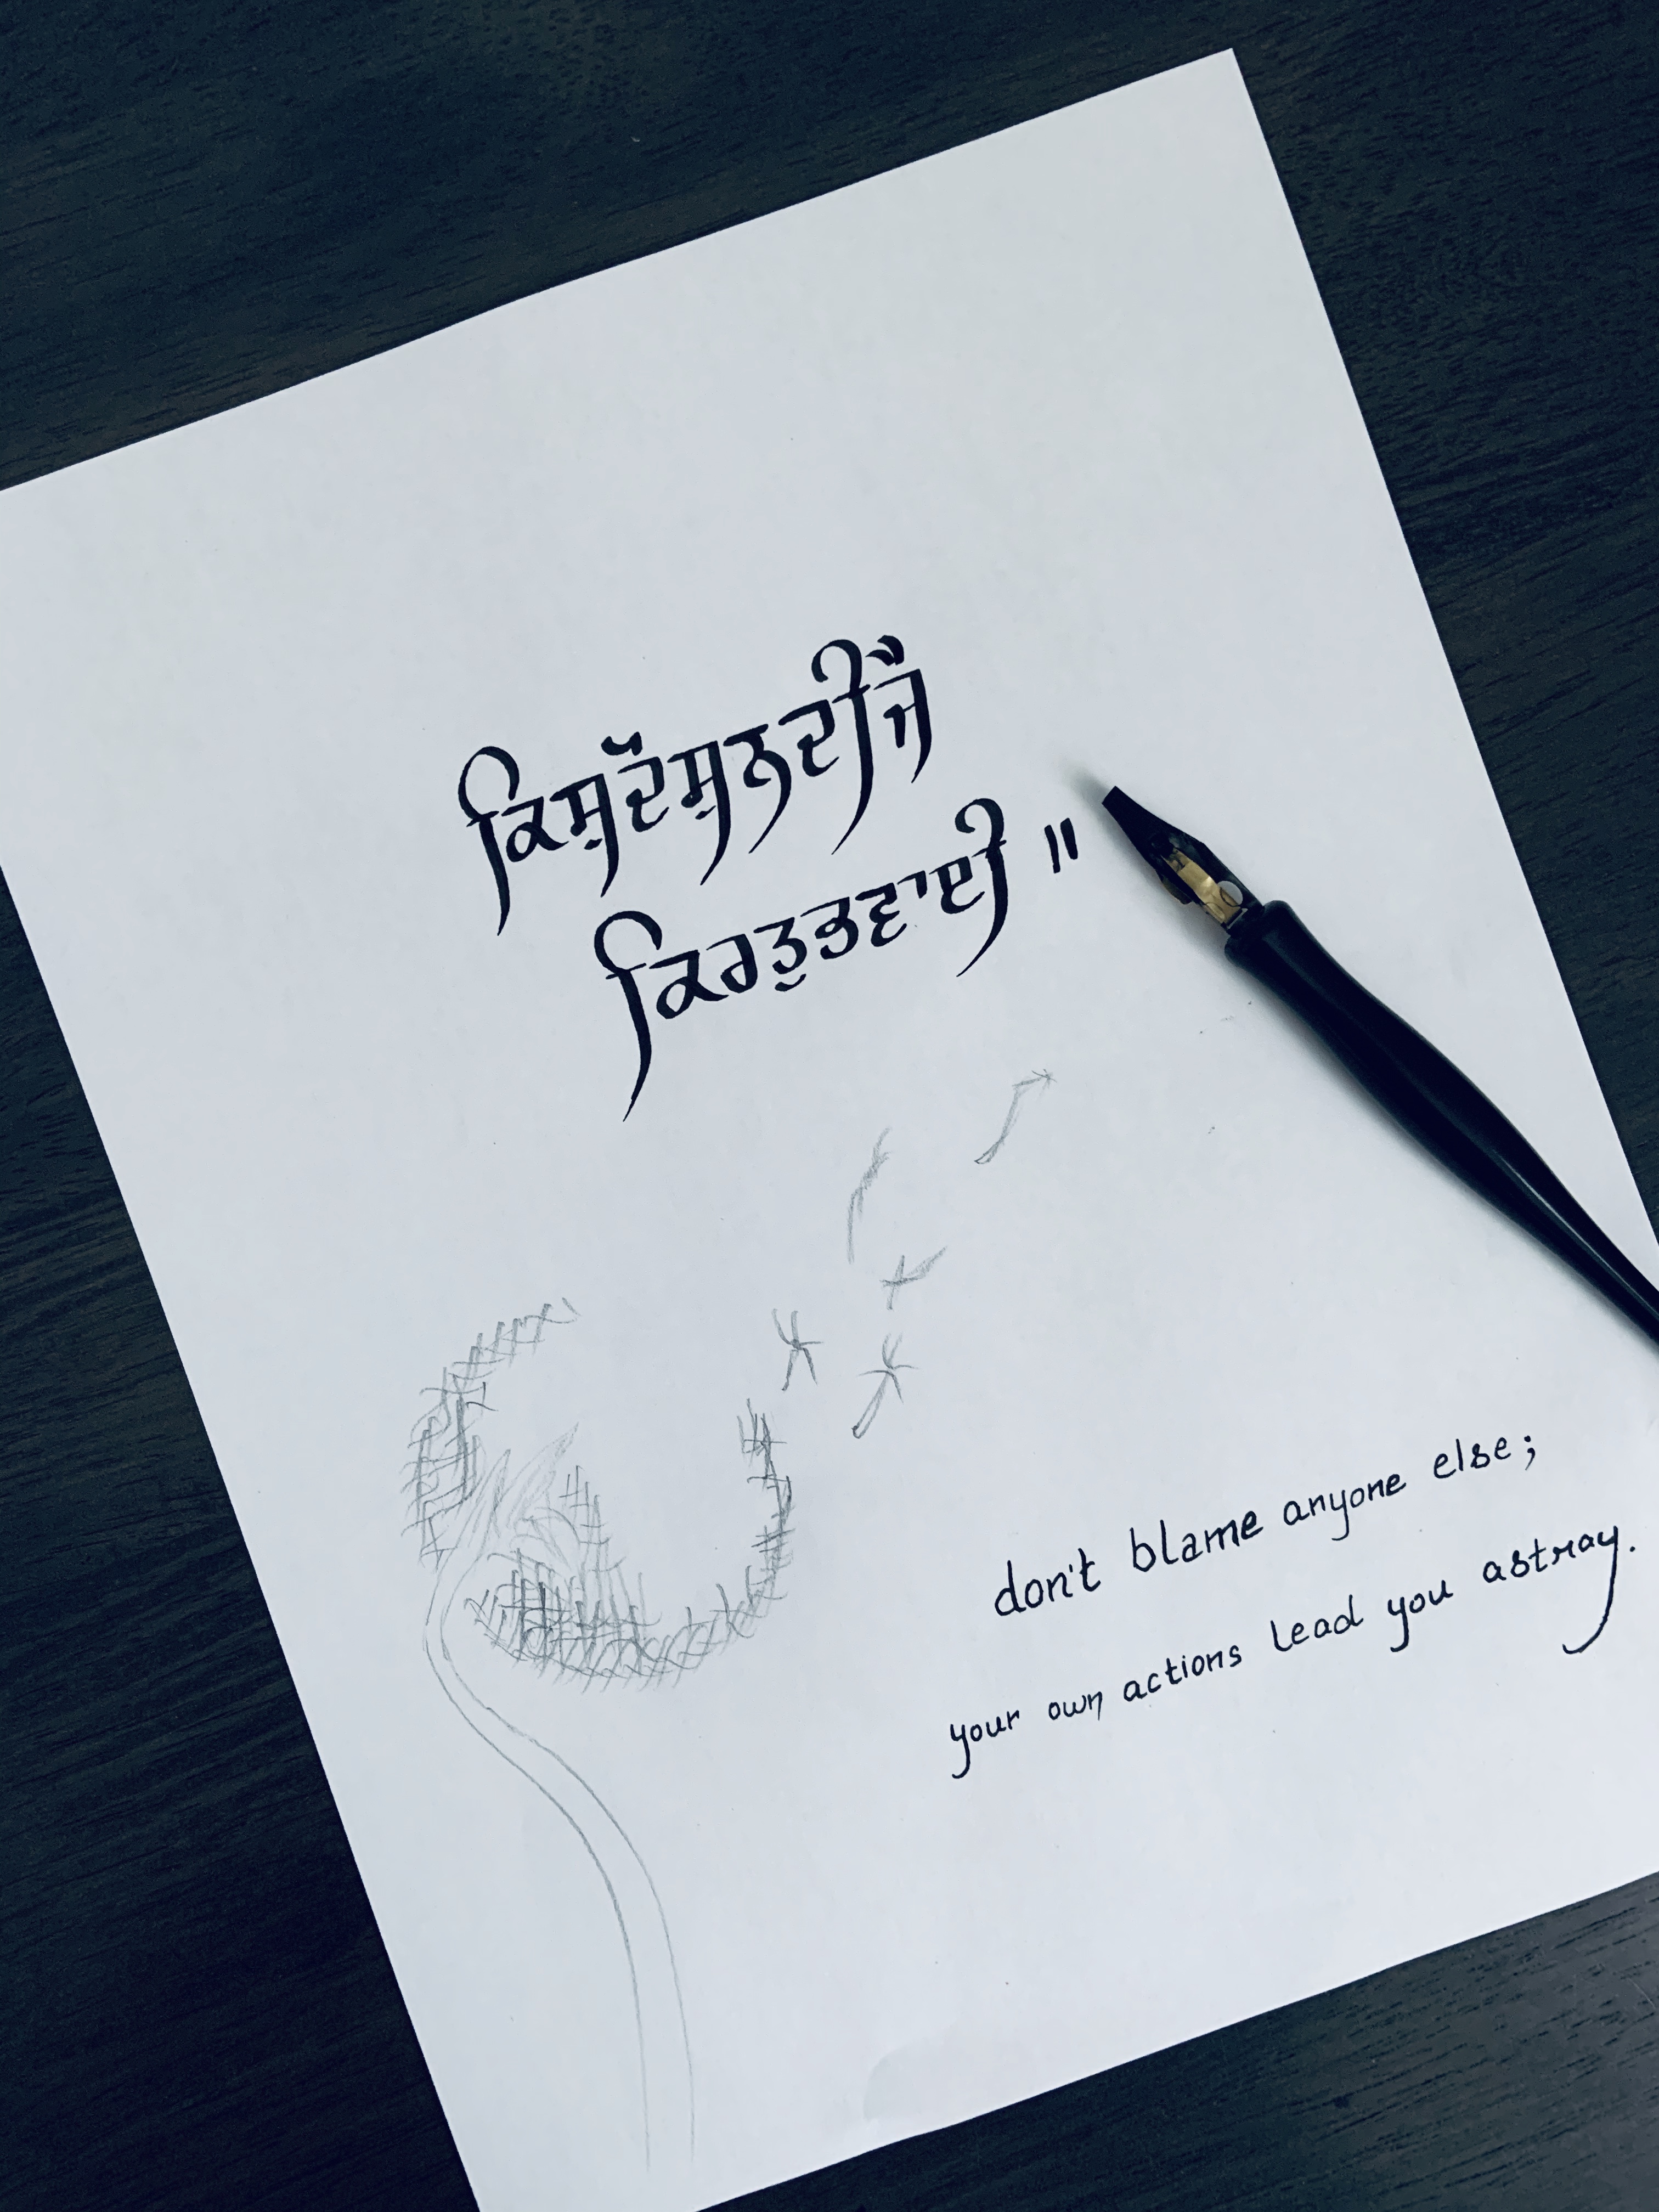 ਕਿਸੁਦੋਸੁਨਦੀਜੈ
ਕਿਰਤੁਭਵਾਈ ॥
don't blame anyone else;
your own actions lead you astray.